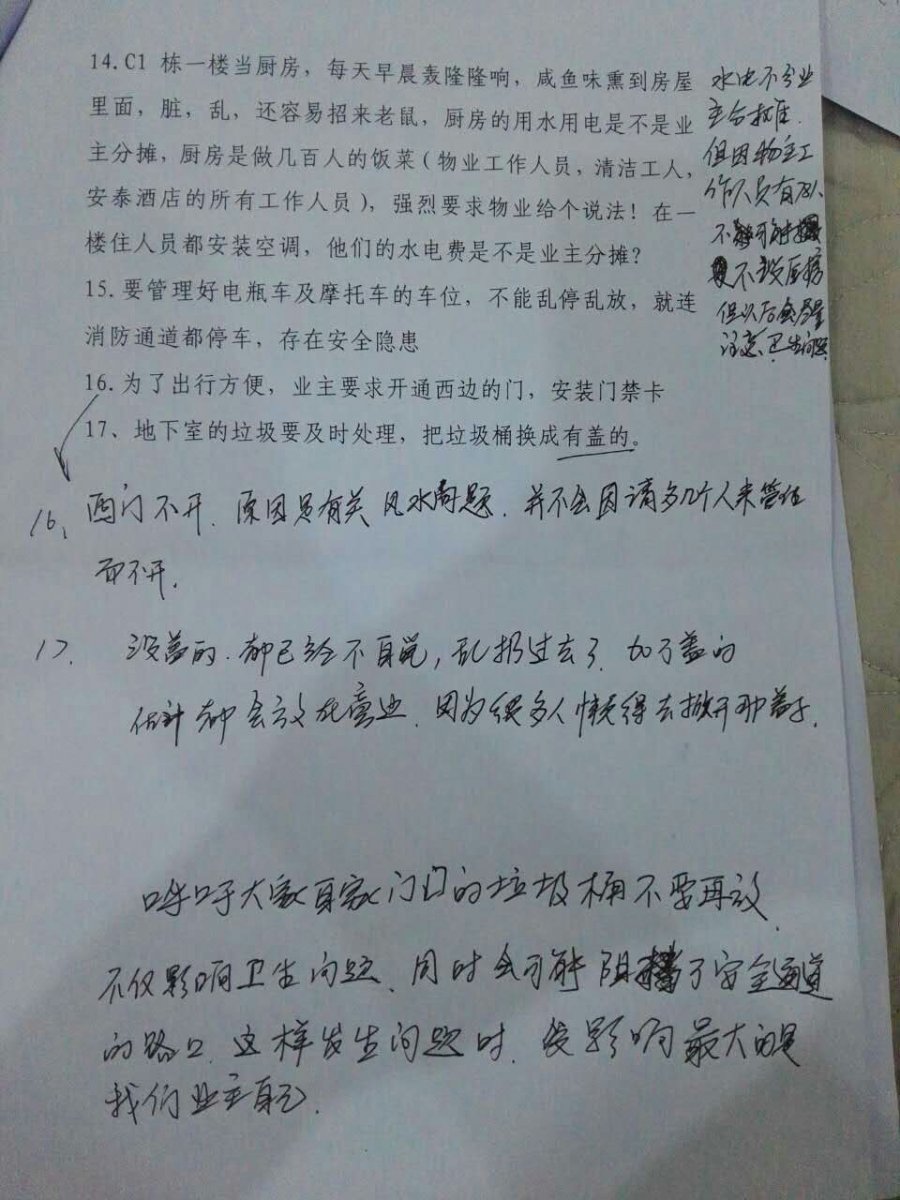 14.C1 栋一楼当厨房，每天早晨轰隆隆响，咸鱼味熏到房屋
里面，脏，乱，还容易招来老鼠，厨房的用水用电是不是业
主分摊，厨房是做几百人的饭菜（物业工作人员，清洁工人，
安泰酒店的所有工作人员），强烈要求物业给个说法！在一
楼住人员都安装空调，他们的水电费是不是业主分摊？
15.要管理好电瓶车及摩托车的车位，不能乱停乱放，就连
消防通道都停车，存在安全隐患
16.为了出行方便，业主要求开通西边的门，安装门禁卡
17、地下室的垃圾要及时处理，把垃圾桶换成有盖的。
水电不分业
主分摊.
但因物主工
作人员有限、
不可能
不设厨房
但以后会尽量
注意卫生问题
16、西门不开. 原因是有关风水问题. 并不会因请多几个人来管住
而不开.
17. 没盖的. 都已经不自觉, 乱扔过去了. 加了盖的
估计都会放在. 因为很多人懒得去掀开那盖子.
呼吁大家自家门口的垃圾桶不要再放
不仅影响卫生问题、同时会可能阻挡了安全通道
的路口. 这样发生问题时. 受影响最大的是
我们业主自己.